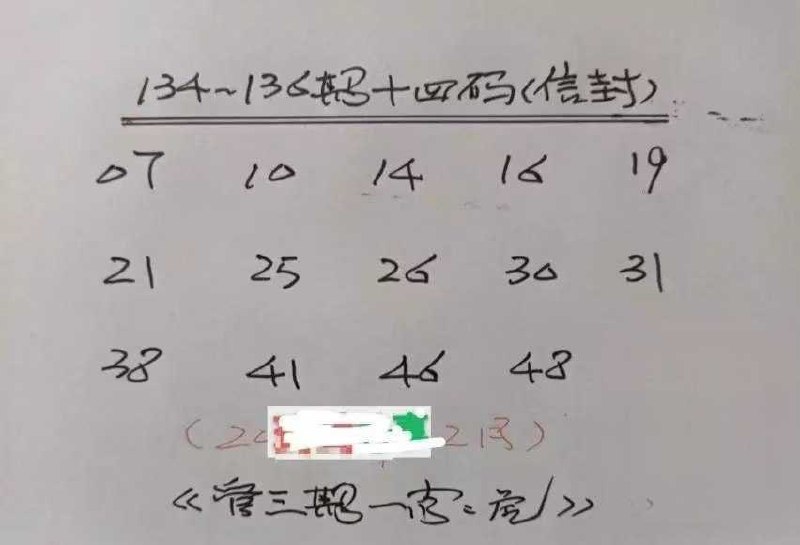 134~136期十四码(信封)
07 10 14 16 19
21 25 26 30 31
38 41 46 48
(2
《管三期一